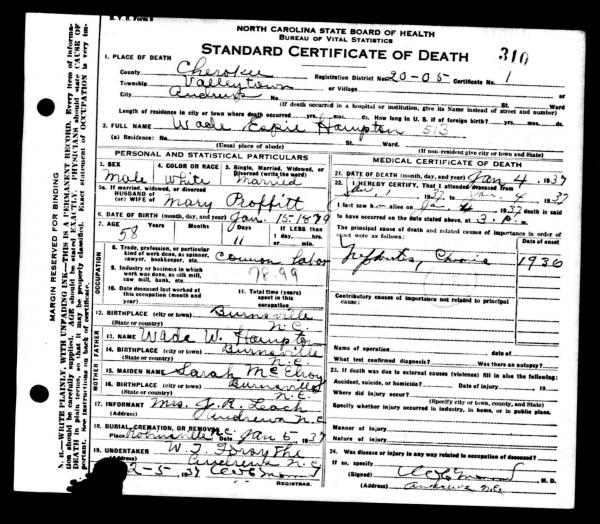 NORTH CAROLINA STATE BOARD OF HEALTH
BUREAU OF VITAL STATISTICS
STANDARD CERTIFICATE OF DEATH 310
1. PLACE OF DEATH
County Cherokee Registration District No. 20-05 Certificate No. 1
Township Valleytown or Village
City Andrews No. St. Ward
(If death occurred in a hospital or institution, give its Name instead of street and number)
Length of residence in city or town where death occurred yrs. mos. ds. How long in U.S. if of foreign birth? yrs. mos. ds.
2. FULL NAME Wade Espie Hampton 513
(a) Residence: No. St. Ward.
(Usual place of abode) (If non-resident give city or town and State)
PERSONAL AND STATISTICAL PARTICULARS
3. SEX 4. COLOR OR RACE 5. Single, Married, Widowed, or Divorced (write the word)
Male White Married
5a. If married, widowed, or divorced
HUSBAND of
(or) WIFE of Mary Proffitt
6. DATE OF BIRTH (month, day, and year) Jan. 15-1879
7. AGE Years Months Days If LESS than
1 day, hrs.
or min.
58 11
OCCUPATION
8. Trade, profession, or particular
kind of work done, as spinner,
sawyer, bookkeeper, etc. Common labor
9. Industry or business in which
work was done, as silk mill,
saw mill, bank, etc. 98.99
10. Date deceased last worked at
this occupation (month and
year)
11. Total time (years)
spent in this
occupation
12. BIRTHPLACE (city or town) Burnsville
(State or country) N.C.
FATHER
13. NAME Wade W. Hampton
14. BIRTHPLACE (city or town) Burnsville
(State or country) N.C.
MOTHER
15. MAIDEN NAME Sarah McElroy
16. BIRTHPLACE (city or town) Burnsville
(State or country) N.C.
17. INFORMANT Mrs. J.R. Leach
(Address) Andrews N.C.
18. BURIAL, CREMATION, OR REMOVAL
Place Robinsville N.C. Date Jan 5-1937
19. UNDERTAKER W.D. Forsythe
(Address) Andrews N.C.
2-5, 37
REGISTRAR.
MEDICAL CERTIFICATE OF DEATH
21. DATE OF DEATH (month, day, and year) Jan 4, 1937
22. I HEREBY CERTIFY, That I attended deceased from
Jan 1, 1937, to Jan 4, 1937
I last saw h alive on Jan 4, 1937 death is said
to have occurred on the date stated above, at 3. P. m.
The principal cause of death and related causes of importance in order of
onset were as follows:
Date of onset
Nephritis, Chronic 1936
Contributory causes of importance not related to principal
cause:
Name of operation date of
What test confirmed diagnosis? Was there an autopsy?
23. If death was due to external causes (violence) fill in also the following:
Accident, suicide, or homicide? Date of injury 19
Where did injury occur?
(Specify city or town, county, and State)
Specify whether injury occurred in industry, in home, or in public place.
Manner of injury
Nature of injury
24. Was disease or injury in any way related to occupation of deceased?
If so, specify
(Signed) M. D.
(Address) Andrews N.C.
MARGIN RESERVED FOR BINDING
N. B.—WRITE PLAINLY, WITH UNFADING INK—THIS IS A PERMANENT RECORD. Every item of information should be carefully supplied. AGE should be stated EXACTLY. PHYSICIANS should state CAUSE OF DEATH in plain terms, so that it may be properly classified. Exact statement of OCCUPATION is very important. See instructions on back of certificate.